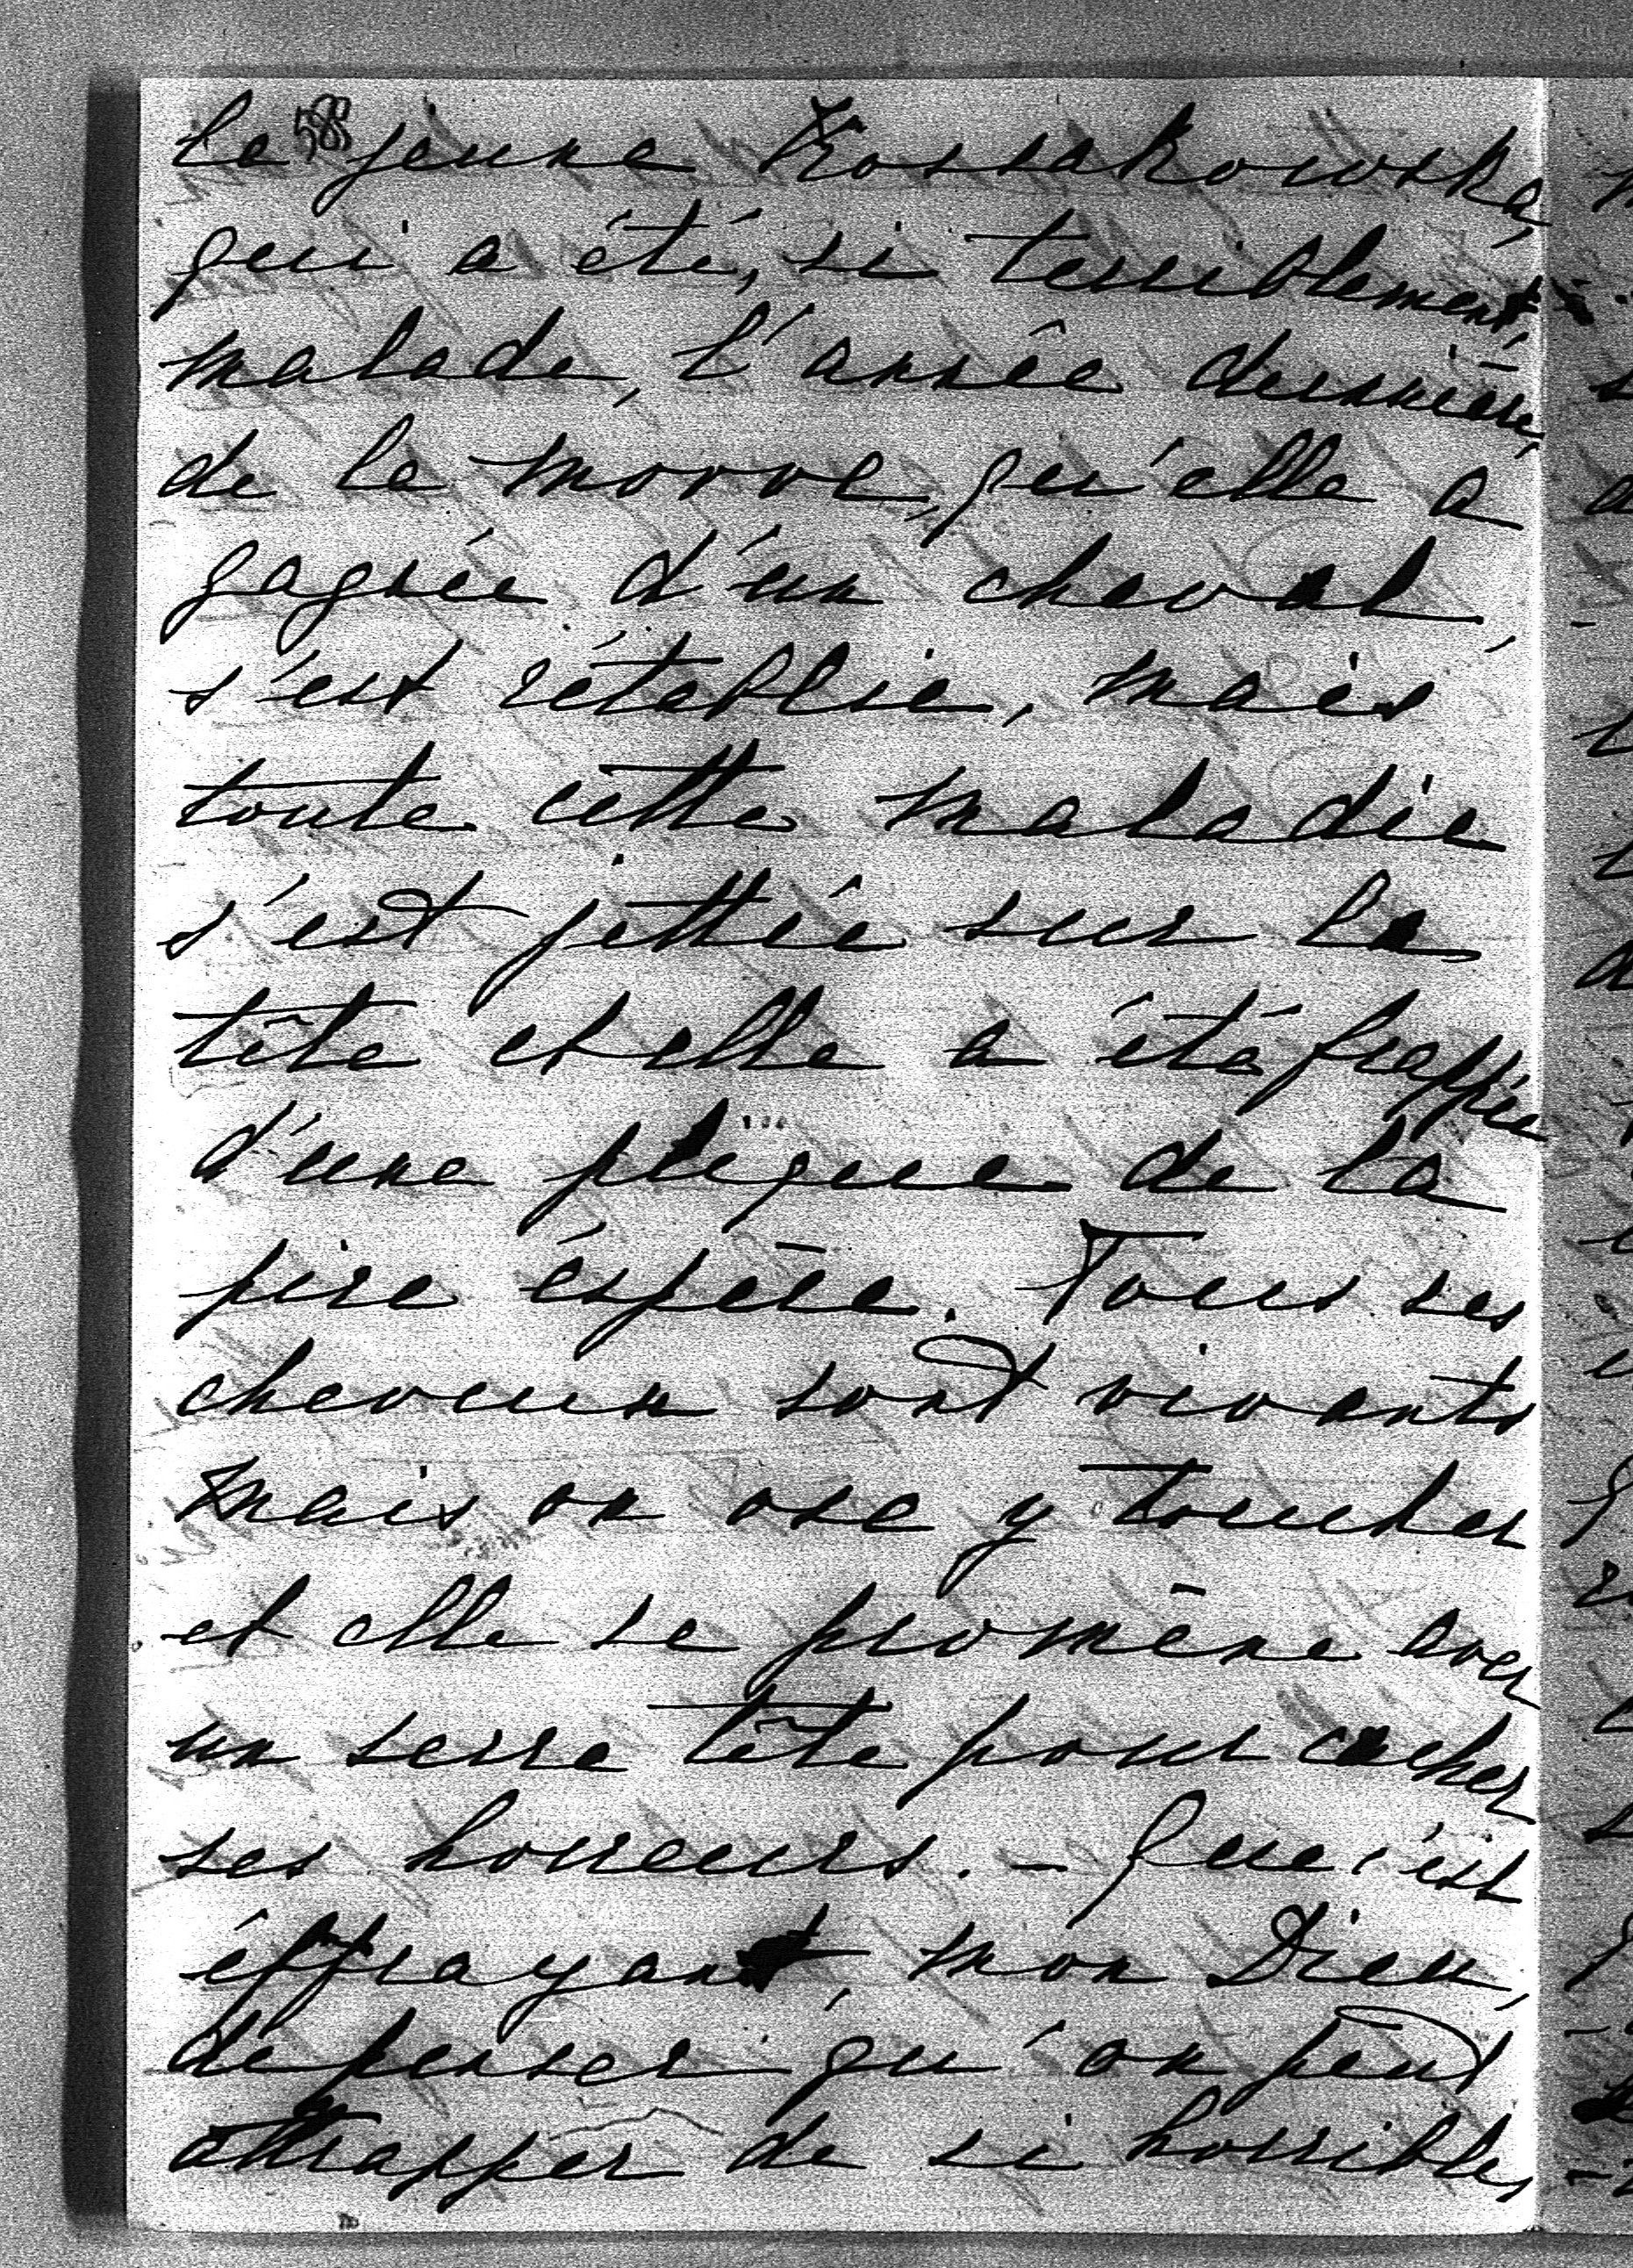 58
la jeune Kossakowska,
qui a été, si terriblement
malade, l'année dernière,
de la morve, qu'elle a
gagnée d'un cheval,
s'est rétablie, mais
toute cette maladie
s'est jettée sur la
tête et elle a été frappée
d'une plique de la
pire éspèce. Tous ses
cheveux sont vivants
mais on ose y toucher
et elle se promène avec
un serre tête pour cacher
ses horreurs. – Que c'est
éffrayant, mon Dieu,
de penser qu'on peut
attrapper de si horribles